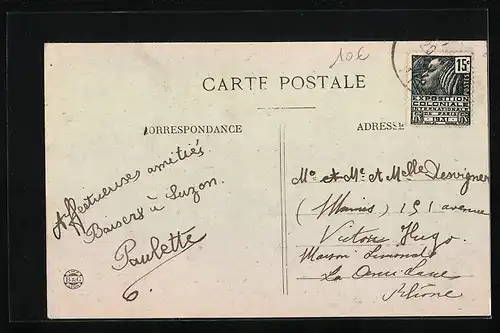 10€
CARTE POSTALE
CORRESPONDANCE
ADRESSE
15c
POSTES
EXPOSITION
COLONIALE
INTERNATIONALE
DE PARIS
1931
Affectueuses amitiés
Baisers à Suzon.
Paulette
6.
B&G
Mr et Me et Melle Desvignes
151 avenue
Victor Hugo.
Maison
La
Rhône